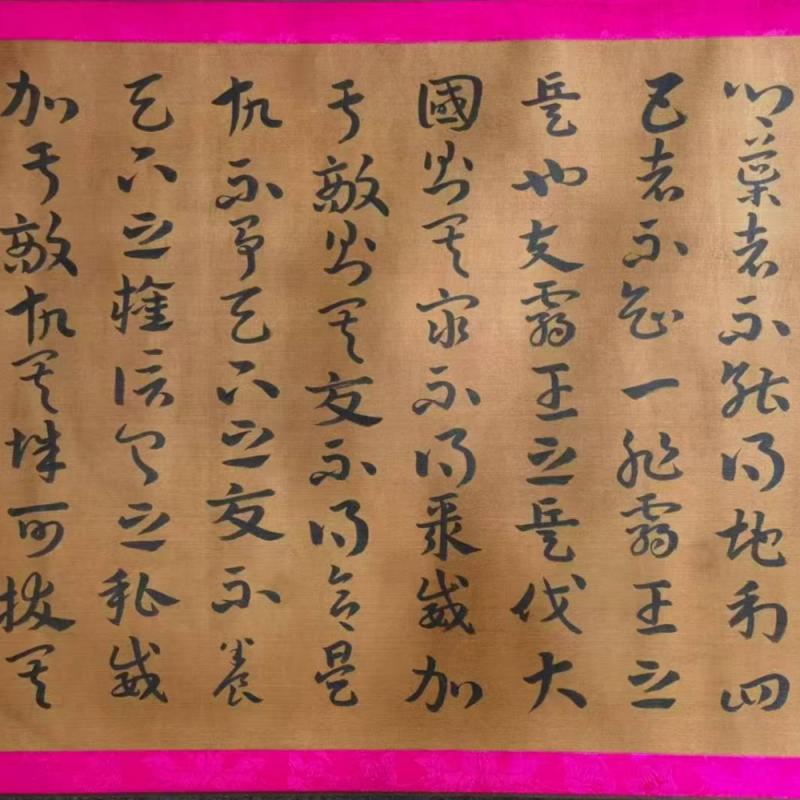 者不能得地利四
五者不知一非霸王之
兵也夫霸王之兵伐大
國則其眾不得聚威加
於敵則其交不得合是
故不爭天下之交不養
天下之權信己之私威
加於敵故其城可拔其